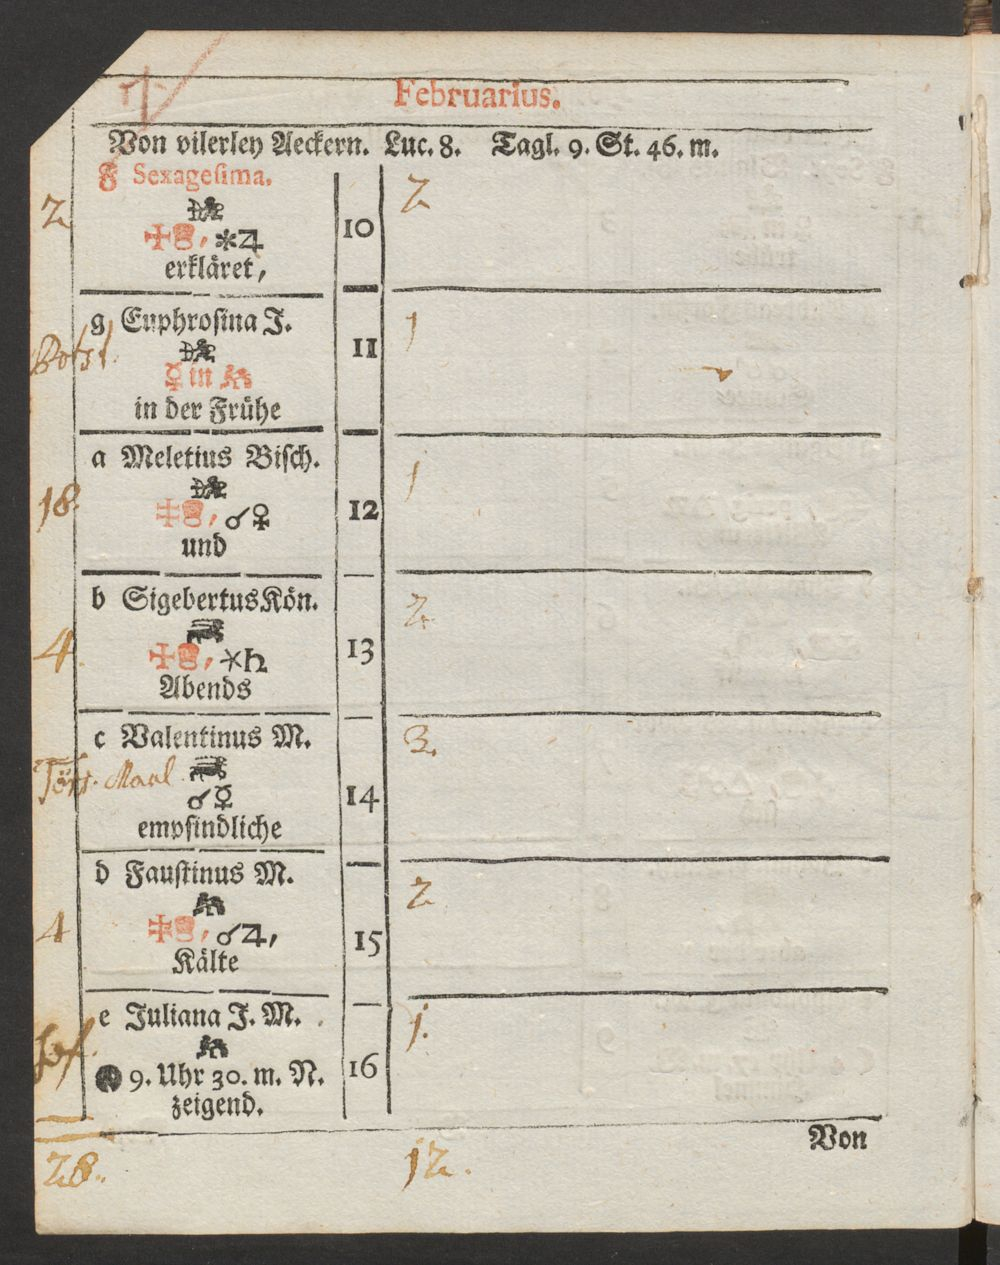 Februarius.
Von vilerley Aeckern. Luc. 8. Tagl. 9. St. 46. m.
F Sexagesima.
2 10 2
✠, ✱♃
erkläret,
g Euphrosina J.
11 1
☿ in
in der Frühe
a Meletius Bisch.
18. 12 1
✠, ☌♀
und
b Sigebertus Kön.
4. 13 2.
✠, ⚹♄
Abends
c Valentinus M.
14 3.
☌☿
empfindliche
d Faustinus M.
4 15 2.
✠, ☌♃,
Kälte
e Juliana J. M.
16 1.
9. Uhr 30. m. N.
zeigend.
Von
28. 12.